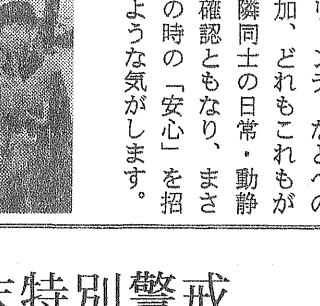 ンテ などへの
加、どれもこれもが
隣同士の日常・動静
確認ともなり、まさ
の時の「安心」を招
ような気がします。
末特別警戒